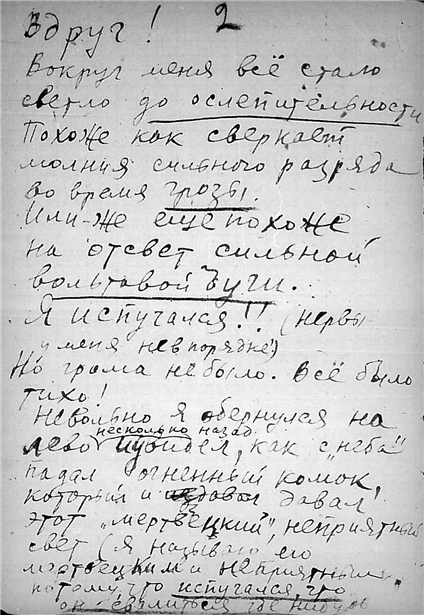 Вдруг! 2
Вокруг меня всё стало
светло до ослепительности
Похоже как сверкает
молния сильного разряда
во время грозы.
Или-же ещё похоже
на отсвет сильной
вольтовой дуги.
Я испугался!! (нервы
у меня не в порядке)
Но грома не было. Всё было
тихо!
Невольно я обернулся на
лево несколько назад
и увидел, как с „неба"
падал огненный комок,
который и давал
этот „мертвецкий", неприятный
свет (я называю его
мертвецким и неприятным
потому, что испугался, что
он свалиться где нибудь